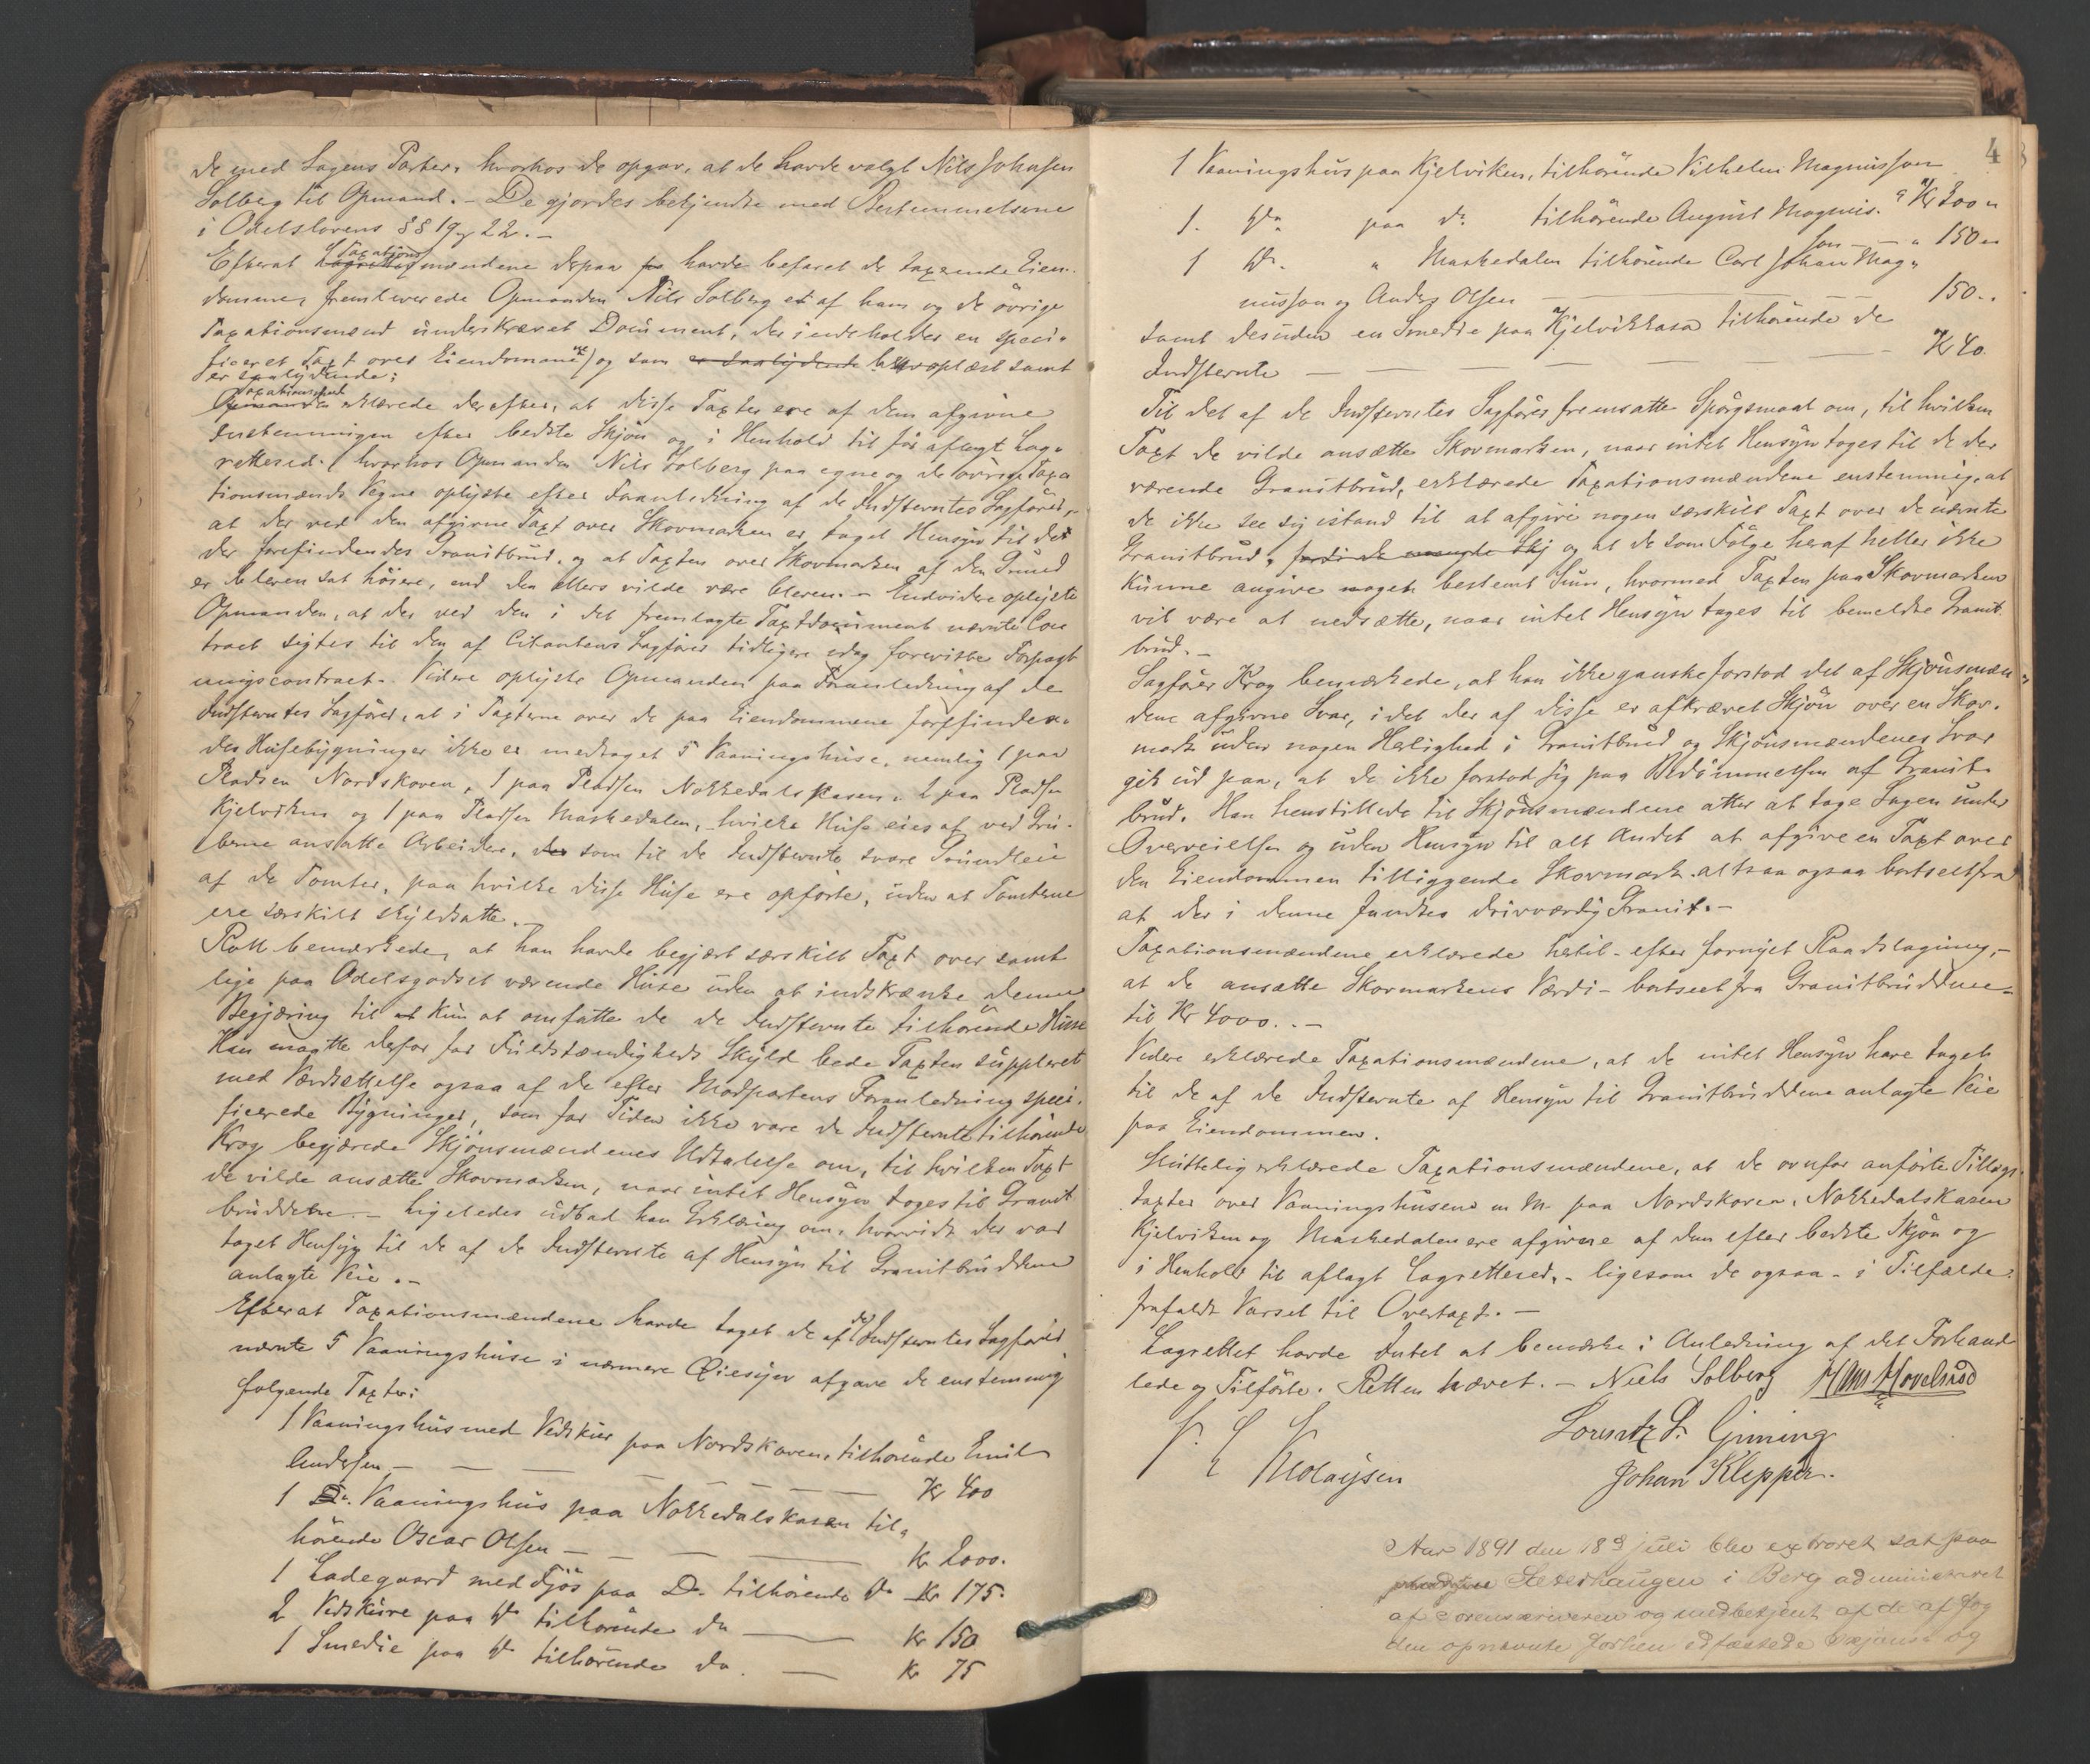 de med Sagens Parter, hvorhos de opgav, at de havde valgt Nils Johnsen
Solberg til Opmand. – De gjordes bekjendte med Bestemmelserne
i Odelslovens §§ 19 og 22. –
Efterat Lagrettes Taxationsmændene derpaa havde befaret de taxerende Eien-
domme, fremleverede Opmanden Nils Solberg et af ham og de øvrige
Taxationsmænd underskrevet Document, der indeholder en speci-
ficeret Taxt over Eiendommene) og som er saalydende blev oplæst samt
er saalydende:
Opmanden Taxationsmænd erklærede derefter, at disse Taxter ere af dem afgivne
enstemmigen efter bedste Skjøn og i Henhold til før aflagt Lag-
rettesed. (hvorhos Opmanden Nils Solberg paa egne og de øvrige Taxa
tionsmænds Vegne oplyste efter Foranledning af de Indstevntes Sagfører,
at der ved den afgivne Taxt over Skovmarken er taget Hensyn til det
der forefindendes Granitbrud, og at Taxten over Skovmarken af den Grund
er bleven sat høiere, end den ellers vilde være bleven. – Endvidere oplyste
Opmanden, at der ved den i det fremlagte Taxtdocument nævnte Con
tract sigtes til den af Citantens Sagfører tidligere idag foreviste Forpagt
ningscontract. Videre oplyste Opmanden paa Foranledning af de
Indstevntes Sagfører, at i Taxterne over de paa Eiendommene forefinden-
des Husebygninger ikke er medtaget 5 Vaaningshuse, nemlig 1 paa
Pladsen Nordskoven, 1 paa Pladsen Nokkedalskasen, 2 paa Pladsen
Kjelviken og 1 paa Pladsen Maskedalen, hvilke Huse eies af ved Gru-
berne ansatte Arbeidere, der som til de Indstevnte svare Grundleie
af de Tomter, paa hvilke disse Huse ere opførte, uden at Tomterne
ere særskilt skyldsatte. –
Roll bemærkede, at han havde begjært særskilt Taxt over samt
lige paa Odelsgodset værende Huse uden at indskrænke denne
Begjæring til at kun at omfatte de de Indstevnte tilhørende Huse
Han maatte derfor for Fuldstændigheds Skyld bede Taxten suppleret
med Værdsættelse ogsaa af de efter Modpartens Foranledning speci-
ficerede Bygninger, som for Tiden ikke vare de Indstevnte tilhørende
Krog begjærede Skjønsmændenes Udtalelse om, til hvilken Taxt
de vilde ansætte Skovmarken, naar intet Hensyn toges til Granit
bruddene. – Ligeledes udbad han Erklæring om, hvorvidt der var
taget Hensyn til de af de Indstevnte af Hensyn til Granitbruddene
anlagte Veie. –
Efterat Taxationsmændene havde taget de af de Indstevntes Sagfører
nævnte 5 Vaaningshuse i nærmere Øiesyn afgave de enstemmig
følgende Taxter:
1 Vaaningshus med Vedskur paa Nordskoven, tilhørende Emil
Andersen – – – – – Kr 400
1 Do. Vaaningshus paa Nokkedalskasen til-
hørende Oscar Olsen – – – – Kr 2000.
1 Ladegaard med Fjøs paa Do tilhørende Do Kr 175.
2 Vedskure paa Do tilhørende do – Kr 150
1 Smedie paa Do tilhørende do. – Kr 75
4
1 Vaaningshus paa Kjelviken, tilhørende Vilhelm Magnusson
" Kr 200 "
1. Do paa do. tilhørende August Magnus-
son – – " 150 "
1 Do. " Maskedalen tilhørende Carl Johan Mag-
nusson og Anders Olsen – 150 "
samt desuden en Smedie paa Kjelvikkasa tilhørende de
Indstevnte – – – – – Kr 40.
Til det af de Indstevntes Sagfører fremsatte Spørgsmaal om, til hvilken
Taxt de vilde ansætte Skovmarken, naar intet Hensyn toges til de der
værende Granitbrud, erklærede Taxationsmændene enstemmig, at
de ikke see sig istand til at afgive nogen særskilt Taxt over de nævnte
Granitbrud, fordi de mangle Skj og at de som Følge heraf heller ikke
kunne angive noget bestemt Sum, hvormed Taxten paa Skovmarken
vil være at nedsætte, naar intet Hensyn tages til bemeldte Granit
brud. –
Sagfører Krog bemærkede, at han ikke ganske forstod det af Skjønsmæn-
dene afgivne Svar, idet der af disse er afkrævet Skjøn over en Skov-
mark uden nogen Herlighed i Granitbrud og Skjønsmændenes Svar
gik ud paa, at de ikke forstod sig paa Bedømmelsen af Granit-
brud. Han henstillede til Skjønsmændene atter at tage Sagen under
Overveielse og uden Hensyn til alt Andet at afgive en Taxt over
den Eiendommen tilliggende Skovmark altsaa ogsaa bortseet fra
at der i denne fandtes drivværdig Granit. –
Taxationsmændene erklærede hertil – efter fornyet Raadslagning, –
at de ansætte Skovmarkens Værdi – bortseet fra Granitbruddene –
til Kr 4000.. –
Videre erklærede Taxationsmændene, at de intet Hensyn have taget
til de af de Indstevnte af Hensyn til Granitbruddene anlagte Veie
paa Eiendommen.
Sluttelig erklærede Taxationsmændene, at de ovenfor anførte Tillægs-
taxter over Vaaningshusene m. M. paa Nordskoven, Nokkedalskasen
Kjelviken og Maskedalen ere afgivne af dem efter bedste Skjøn og
i Henhold til aflagt Lagrettesed, – ligesom de ogsaa – i Tilfælde –
frafaldt Varsel til Overtaxt. –
Lagrettet havde Intet at bemærke i Anledning af det Forhand
lede og Tilførte. Retten hævet. – Niels Solberg Hans Hovelsrød
Lorentz L. Grining
Nolaysen Johan Klepper.
Aar 1891 den 18de juli blev extraret sat paa
Seterhaugen i Berg administreret
af sorenskriveren og medbetjent af de af fog
den opnævnte